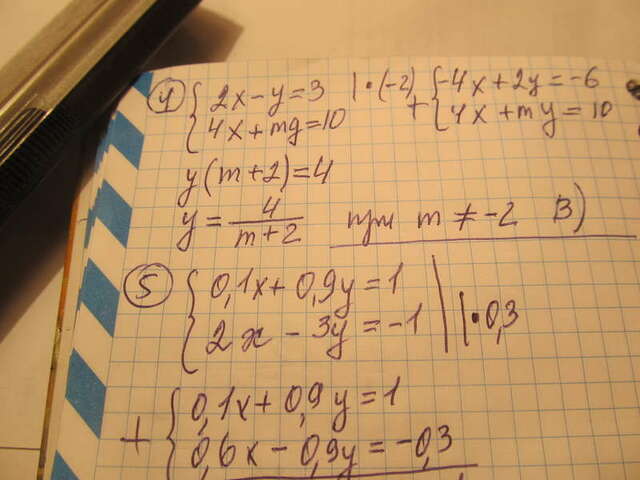 ④ { 2x - y = 3 | · (-2) { -4x + 2y = -6
4x + my = 10 + 4x + my = 10
y (m + 2) = 4
y = 4/(m + 2) при m ≠ -2 В)
⑤ { 0,1x + 0,9y = 1
2x - 3y = -1 | · 0,3
+ { 0,1x + 0,9y = 1
0,6x - 0,9y = -0,3